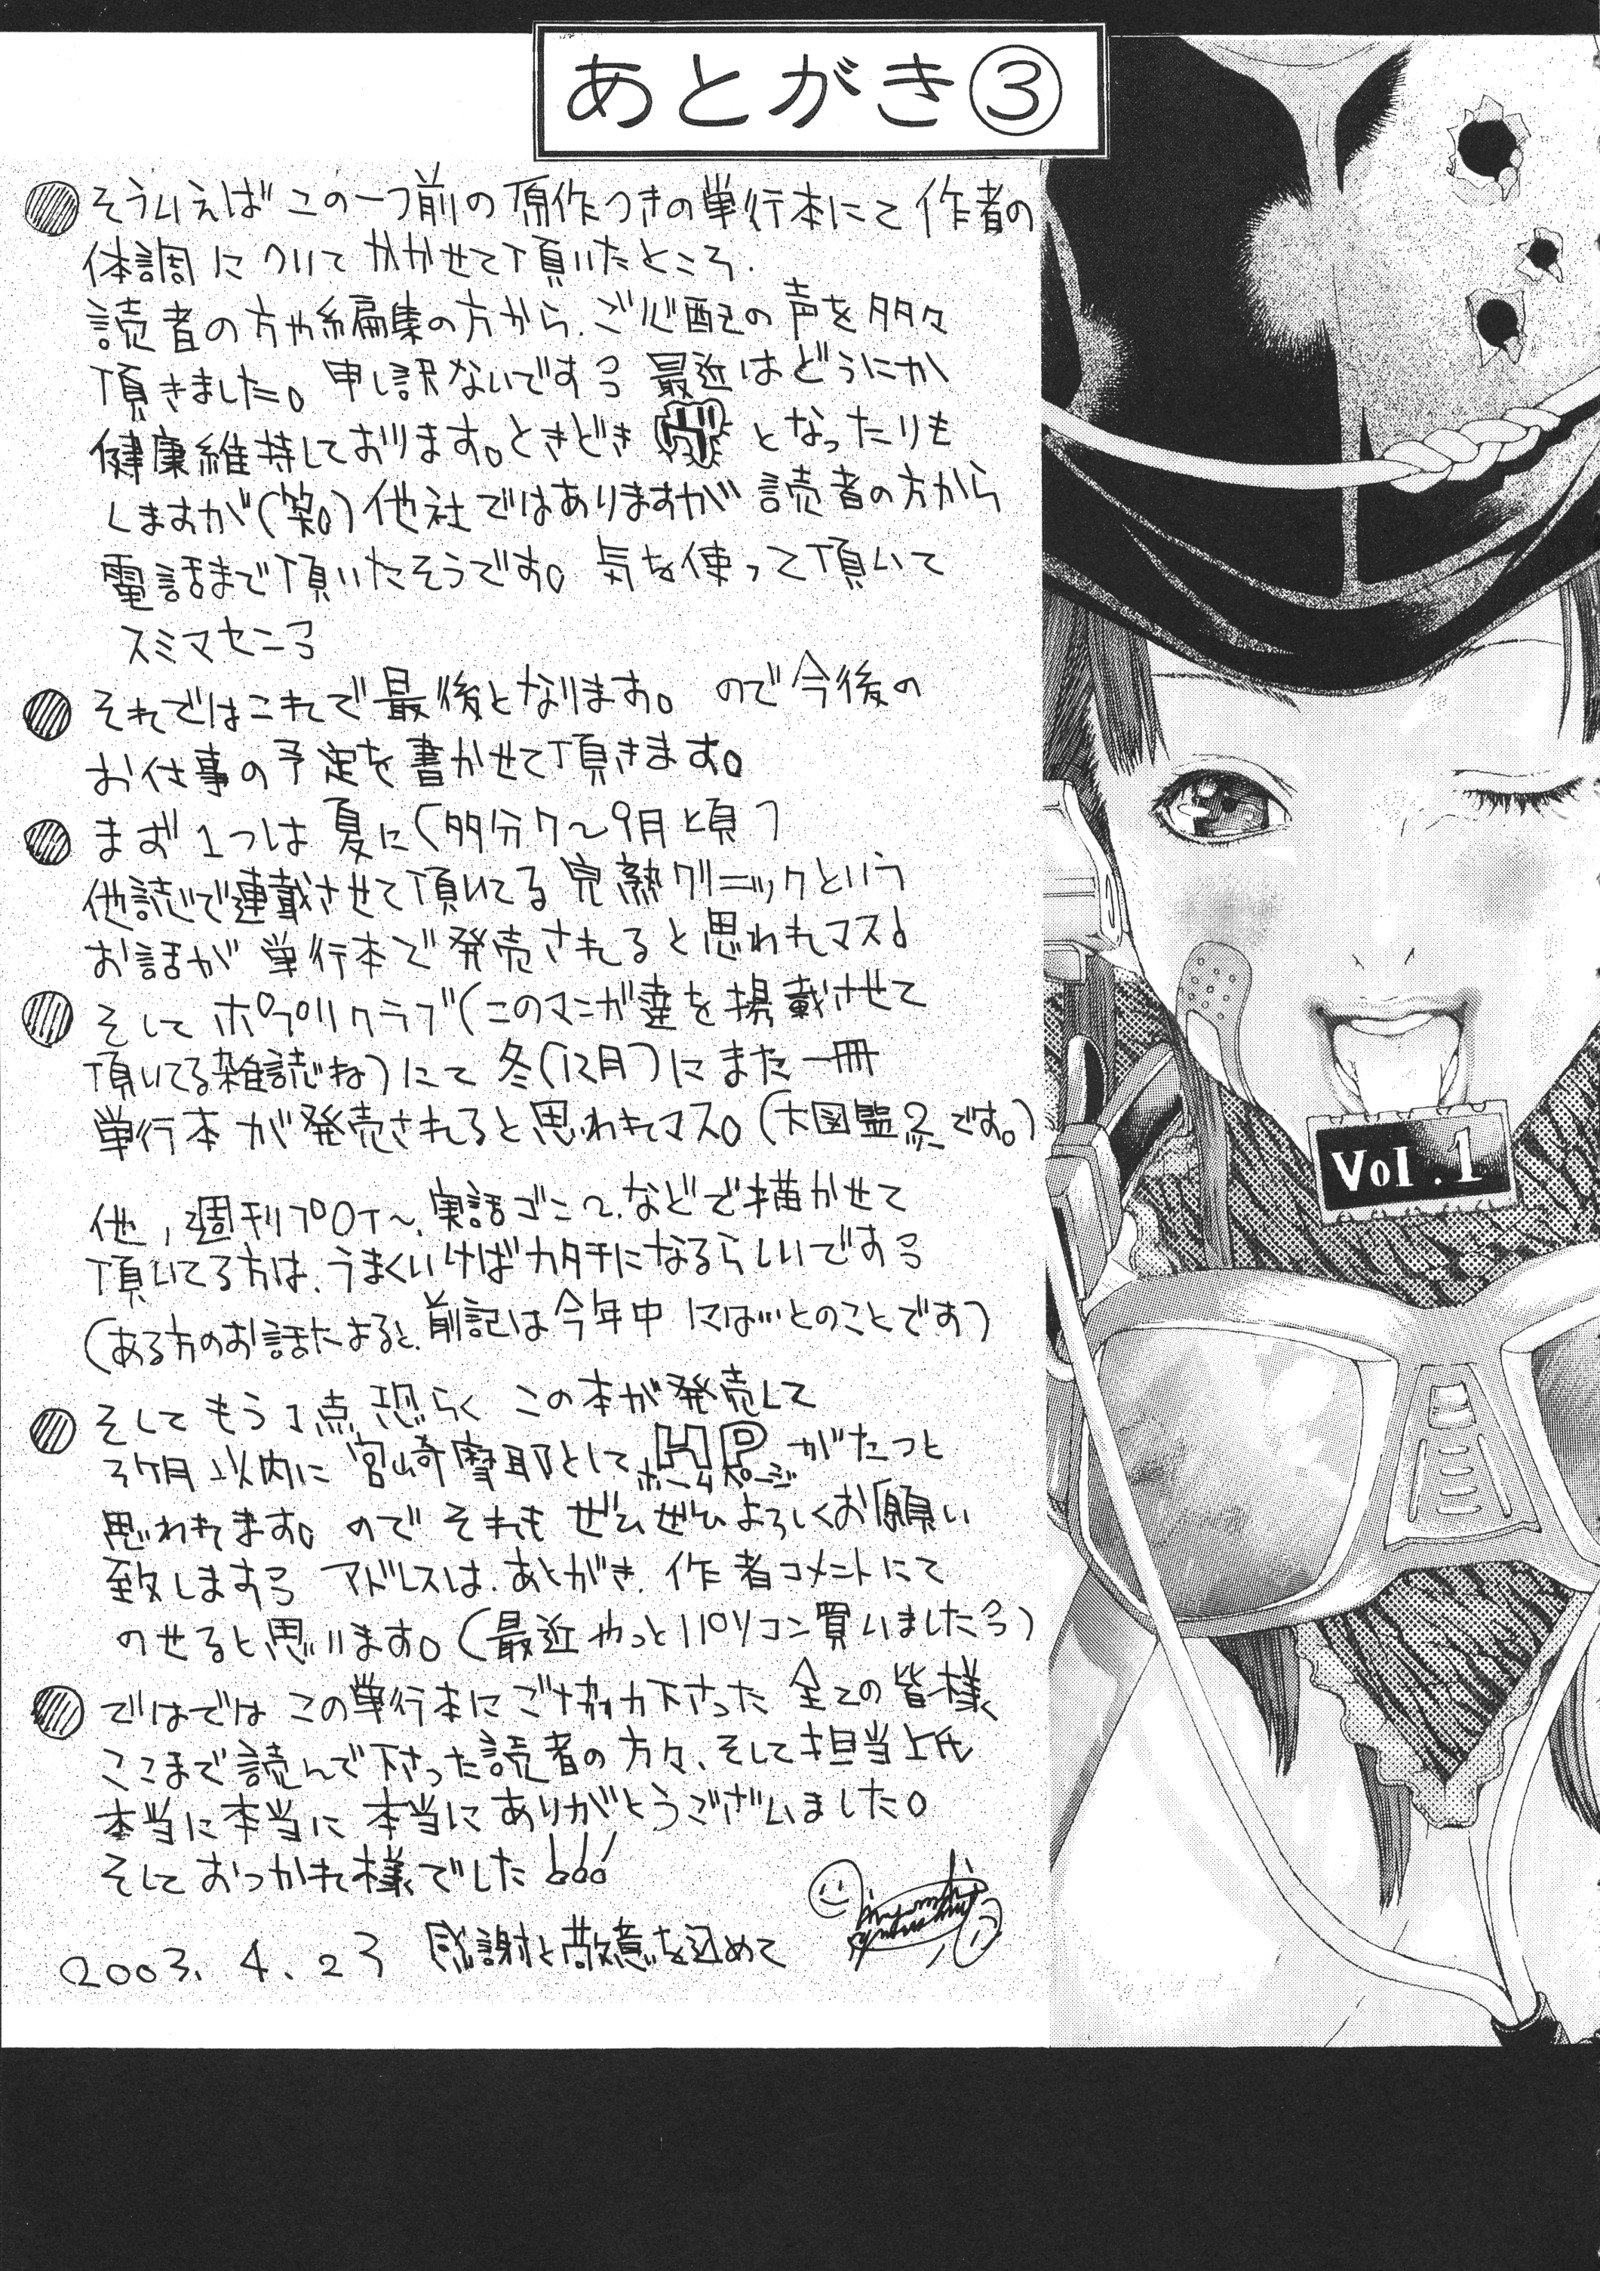 あとがき③
そういえばこの一つ前の原作つきの単行本にて作者の
体調についてかかせて頂いたところ、
読者の方や編集の方から、ご心配の声を多々
頂きました。申し訳ないですっ 最近はどうにか
健康維持しております。ときどき となったりも
しますが(笑)他社ではありますが読者の方から
電話まで頂いたそうです。気を使って頂いて
スミマセンっ
それではこれで最後となります。ので今後の
お仕事の予定を書かせて頂きます。
まず1つは夏に(多分7〜9月頃)
他誌で連載させて頂いてる完熟クリニックという
お話が単行本で発売されると思われマス。
そしてポプリクラブ(このマンガ達を掲載させて
頂いてる雑誌ね)にて冬(12月)にまた一冊
単行本が発売されると思われマス。(大図監2です。)
他、週刊プロT〜、実話ゴン2、などで描かせて
頂いてる方は、うまくいけばカタチになるらしいですっ
(ある方のお話だよると、前記は今年中にば…とのことです)
そしてもう1点、恐らくこの本が発売して
3ヶ月以内に宮崎摩耶としてHPがたつと
ホームページ
思われます。のでそれもぜひぜひよろしくお願い
致しますっ アドレスは、あとがき、作者コメントにて
のせると思います。(最近やっとパソコン買いましたっ)
ではでは この単行本にご協力下さった 全ての皆様、
ここまで読んで下さった読者の方々、そして担当上氏
本当に本当に本当にありがとうございました。
そしておつかれ様でした!!!
2003.4.23 感謝と敬意を込めて
Vol.1